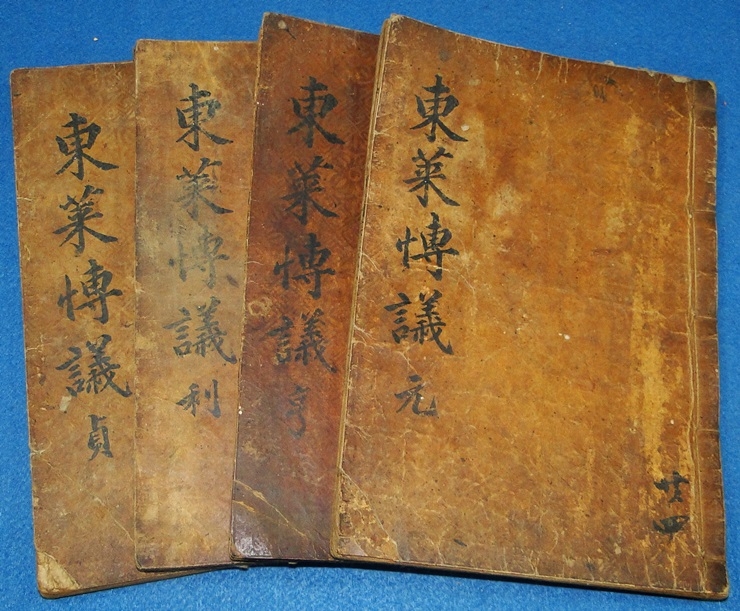 東萊愽議 元
廿四
東萊愽議 亨
東萊愽議 利
東萊愽議 貞